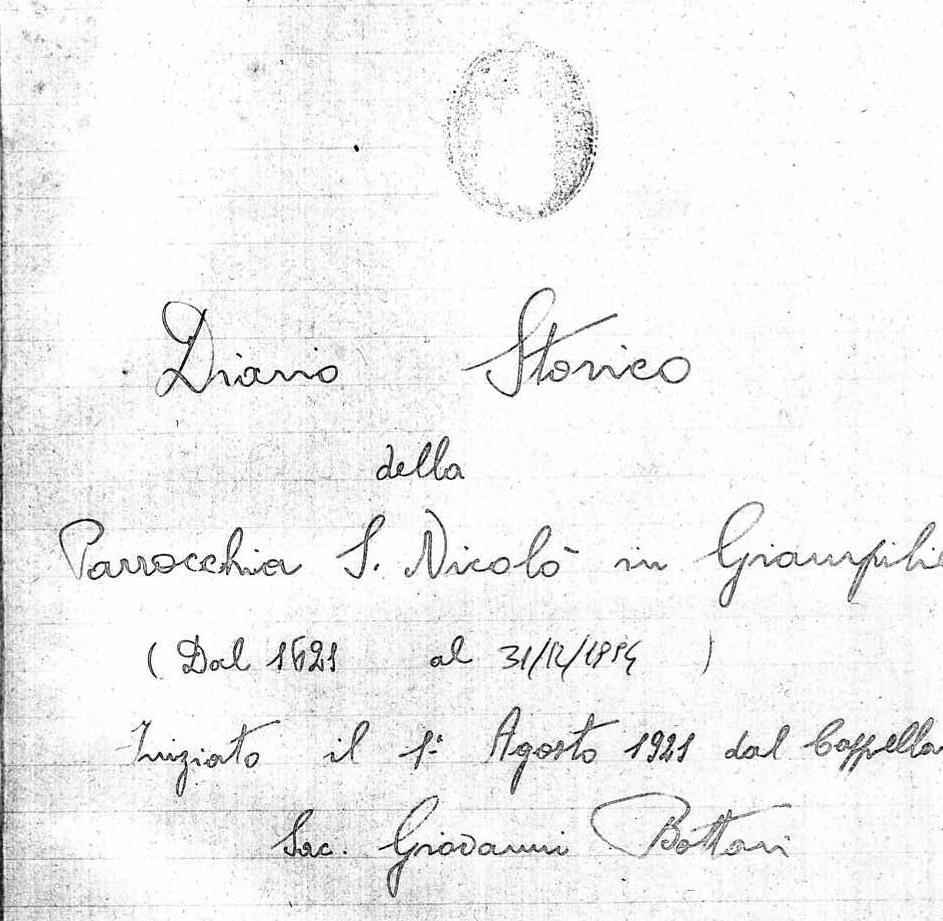 Diario Storico
della
Parrocchia S. Nicolò in Giampilie
( Dal 1621 al 31/12/1954 )
Iniziato il 1° Agosto 1921 dal Cappella
Sac. Giovanni Bottari